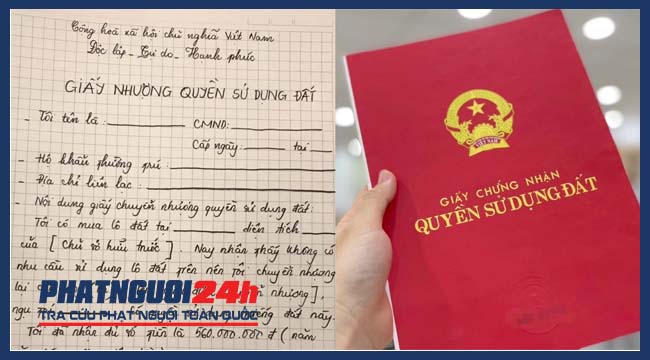 Cộng hoà xã hội chủ nghĩa Việt Nam
Độc lập - Tự do - Hạnh phúc
GIẤY NHƯỢNG QUYỀN SỬ DỤNG ĐẤT
- Tôi tên là: CMND:
Cấp ngày: tại
- Hộ khẩu thường trú:
- Địa chỉ liên lạc:
- Nội dung giấy chuyển nhượng quyền sử dụng đất:
Tôi có mua lô đất tại diện tích
của [Chủ sở hữu trước]. Nay nhận thấy không có
nhu cầu sử dụng lô đất trên nên tôi chuyển nhượng
lại nhượng],
đất này.
Tôi đã nhận đủ số tiền là 560.000.000 đ (năm
PHATNGUOI24h
TRA CỨU PHẠT NGUỘI TOÀN QUỐC
VIỆT NAM
GIẤY CHỨNG NHẬN
QUYỀN SỬ DỤNG ĐẤT